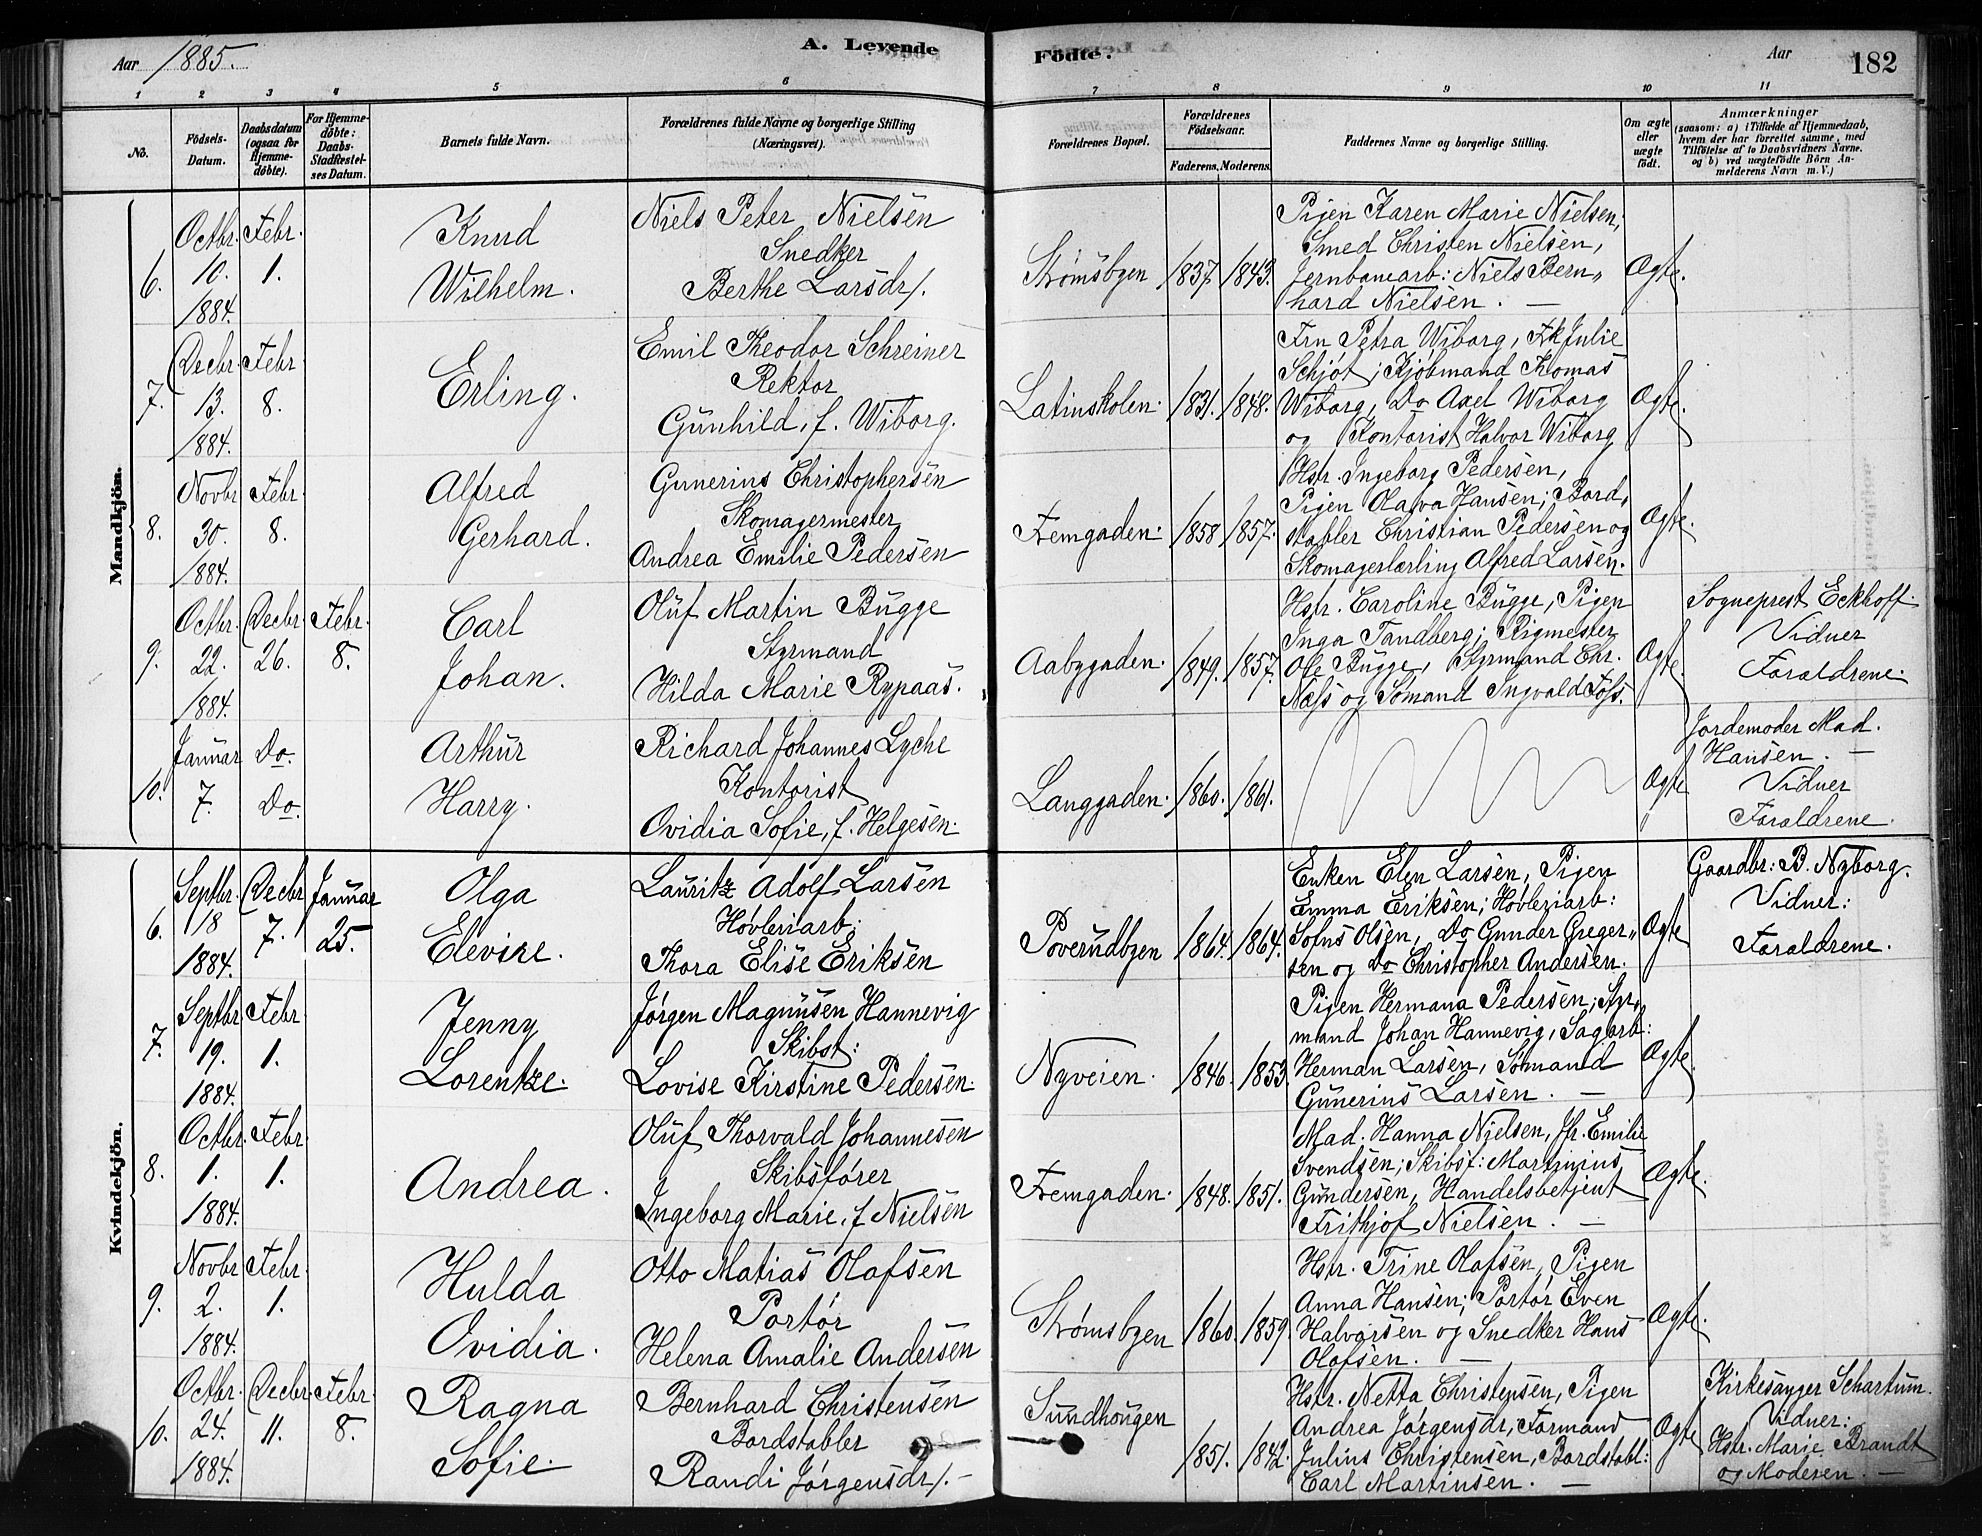 Aar 1885. A. Levende Födte. Aar 182
1 2 3 4 5 6 7 8 9 10 11
No.
Födsels-Datum.
Daabsdatum (ogsaa for Hjemme-döbte).
For Hjemme-döbte: Daabs-Stadfæstel-ses Datum.
Barnets fulde Navn.
Forældrenes fulde Navne og borgerlige Stilling (Næringsvei).
Forældrenes Bopæl.
Forældrenes Födselsaar.
Faderens. Moderens.
Faddernes Navne og borgerlige Stilling.
Om ægte eller uægte födt.
Anmærkninger
(saasom: a) i Tilfælde af Hjemmedaab,
hvem der har forrettet samme, med
Tilföielse af to Daabsvidners Navne.
og b) ved uægtefödte Börn An-
melderens Navn m. V.)
Mandkjön.
6. Octbr. 10. 1884. Febr. 1.
Knud
Wilhelm.
Niels Peter Nielsen
Snedker
Berthe Larsdr.
Strømsbyen 1837. 1843.
Pigen Karen Marie Nielsen;
Smed Christen Nielsen,
Jernbanearb: Niels Bern-
hard Nielsen. —
Ægte.
7. Decbr. 13. 1884. Febr 8.
Erling.
Emil Theodor Schreiner
Rektor
Gunhild, f. Wiborg.
Latinskolen. 1831. 1848.
Fru Petra Wiborg, Frk Julie
Schjøt; Kjøbmand Thomas
Wiborg, Do Axel Wiborg
og Kontorist Halvor Wiborg
Ægte.
8. Novbr 30. 1884. Febr. 8.
Alfred
Gerhard.
Gunerius Christophersen
Skomagermester
Andrea Emilie Pedersen
Femgaden. 1858 1857.
Hstr. Ingeborg Pedersen,
Pigen Olava Hansen; Bord-
stabler Christian Pedersen og
Skomagerlærling Alfred Larsen.
Ægte.
9. Octbr. 22. 1884. Decbr. 26. Febr. 8.
Carl
Johan.
Oluf Martin Bugge
Styrmand
Hilda Marie Rypaas.
Aabygaden. 1849. 1857.
Hstr. Caroline Bugge, Pigen
Inga Tandberg; Rigmester
Ole Bugge, Styrmand Chr.
Næss og Sømand Ingvald Foss.
Ægte.
Sogneprest Eckhoff.
Vidner
Forældrene.
10. Januar 7. Do. Do.
Arthur
Harry.
Richard Johannes Lyche
Kontorist
Ovidia Sofie, f. Helgesen.
Langgaden. 1860. 1861.
Ægte
Jordemoder Mad.
Hansen. —
Vidner
Forældrene.
Kvindekjön.
6. Septbr. 18 1884. Decbr 7. Januar 25.
Olga
Elevine.
Lauritz Adolf Larsen
Høvleriarb:
Thora Elise Eriksen
Poverudbyen 1864. 1864.
Enken Elen Larsen, Pigen
Emma Eriksen; Høvleriarb:
Sofus Olsen, Do Gunder Greger-
sen og Do Christopher Andersen.
Ægte
Gaardbr: B. Nyborg.
Vidner:
Forældrene.
7. Septbr. 19. 1884. Febr 1.
Jenny
Lorentze.
Jørgen Magnusen Hannevig
Skibst:
Lovise Kirstine Pedersen.
Nyveien. 1846. 1853.
Pigen Hermana Pedersen; Styr-
mand Johan Hannevig, Sagarb:
Herman Larsen, Sømand
Gunerius Larsen. —
Ægte.
8. Octbr. 1. 1884. Febr. 1.
Andrea.
Oluf Thorvald Johannesen
Skibsfører
Ingeborg Marie, f Nielsen
Femgaden. 1848. 1851.
Mad. Hanna Nielsen, Jfr. Emilie
Svendsen; Skibsf: Martinius
Gundersen, Handelsbetjent
Frithjof Nielsen. —
Ægte.
9. Novbr 2. 1884. Febr. 1.
Hulda
Ovidia.
Otto Matias Olafsen
Portør
Helena Amalie Andersen
Strømsbyen 1860. 1859.
Hstr. Trine Olafsen, Pigen
Anna Hansen; Portør Even
Halvorsen og Snedker Hans
Olafsen. —
Ægte.
10. Octbr. 24. 1884. Decbr. 11. Febr. 8.
Ragna
Sofie.
Bernhard Christensen
Bordstabler
Randi Jørgensdr. —
Sundhougen 1851. 1842.
Hstr. Netta Christensen, Pigen
Andrea Jørgensdr; Formand
Julius Christensen, Bordstabl:
Carl Martinsen. —
Ægte
Kirkesanger Schartum.
Vidner:
Hstr. Marie Brandt
og Moderen. —